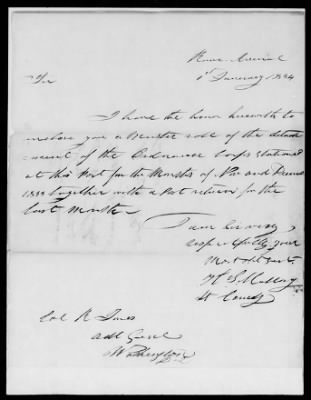 Rome Arsenal
1st January 1834
Sir
I have the honor herewith to
enclose you a Muster roll of the detach
ment of the Ordnance Corps stationed
at this Post for the Months of Nov and Decem
1833 together with a Post return for the
last Month
I am Sir very
respectfully your
Most obt Servt
W. S. Mallory
Lt Comdg
Col R Jones
Adjt Genrl
Washington